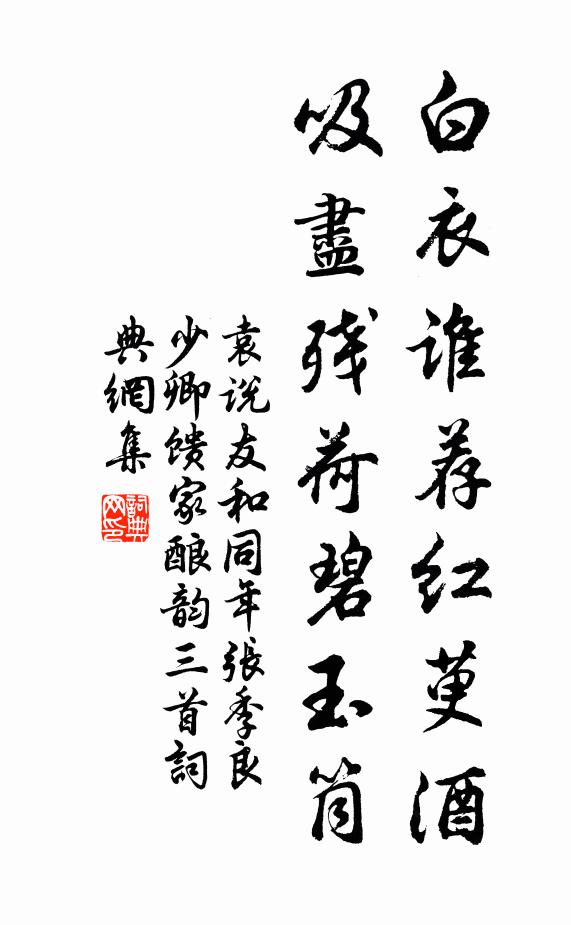 白衣谁荐红萸酒
吸盡残荷碧玉筒
袁说友和同年張季良
少卿馈家酿韵三首詞
典網集
詞典网印